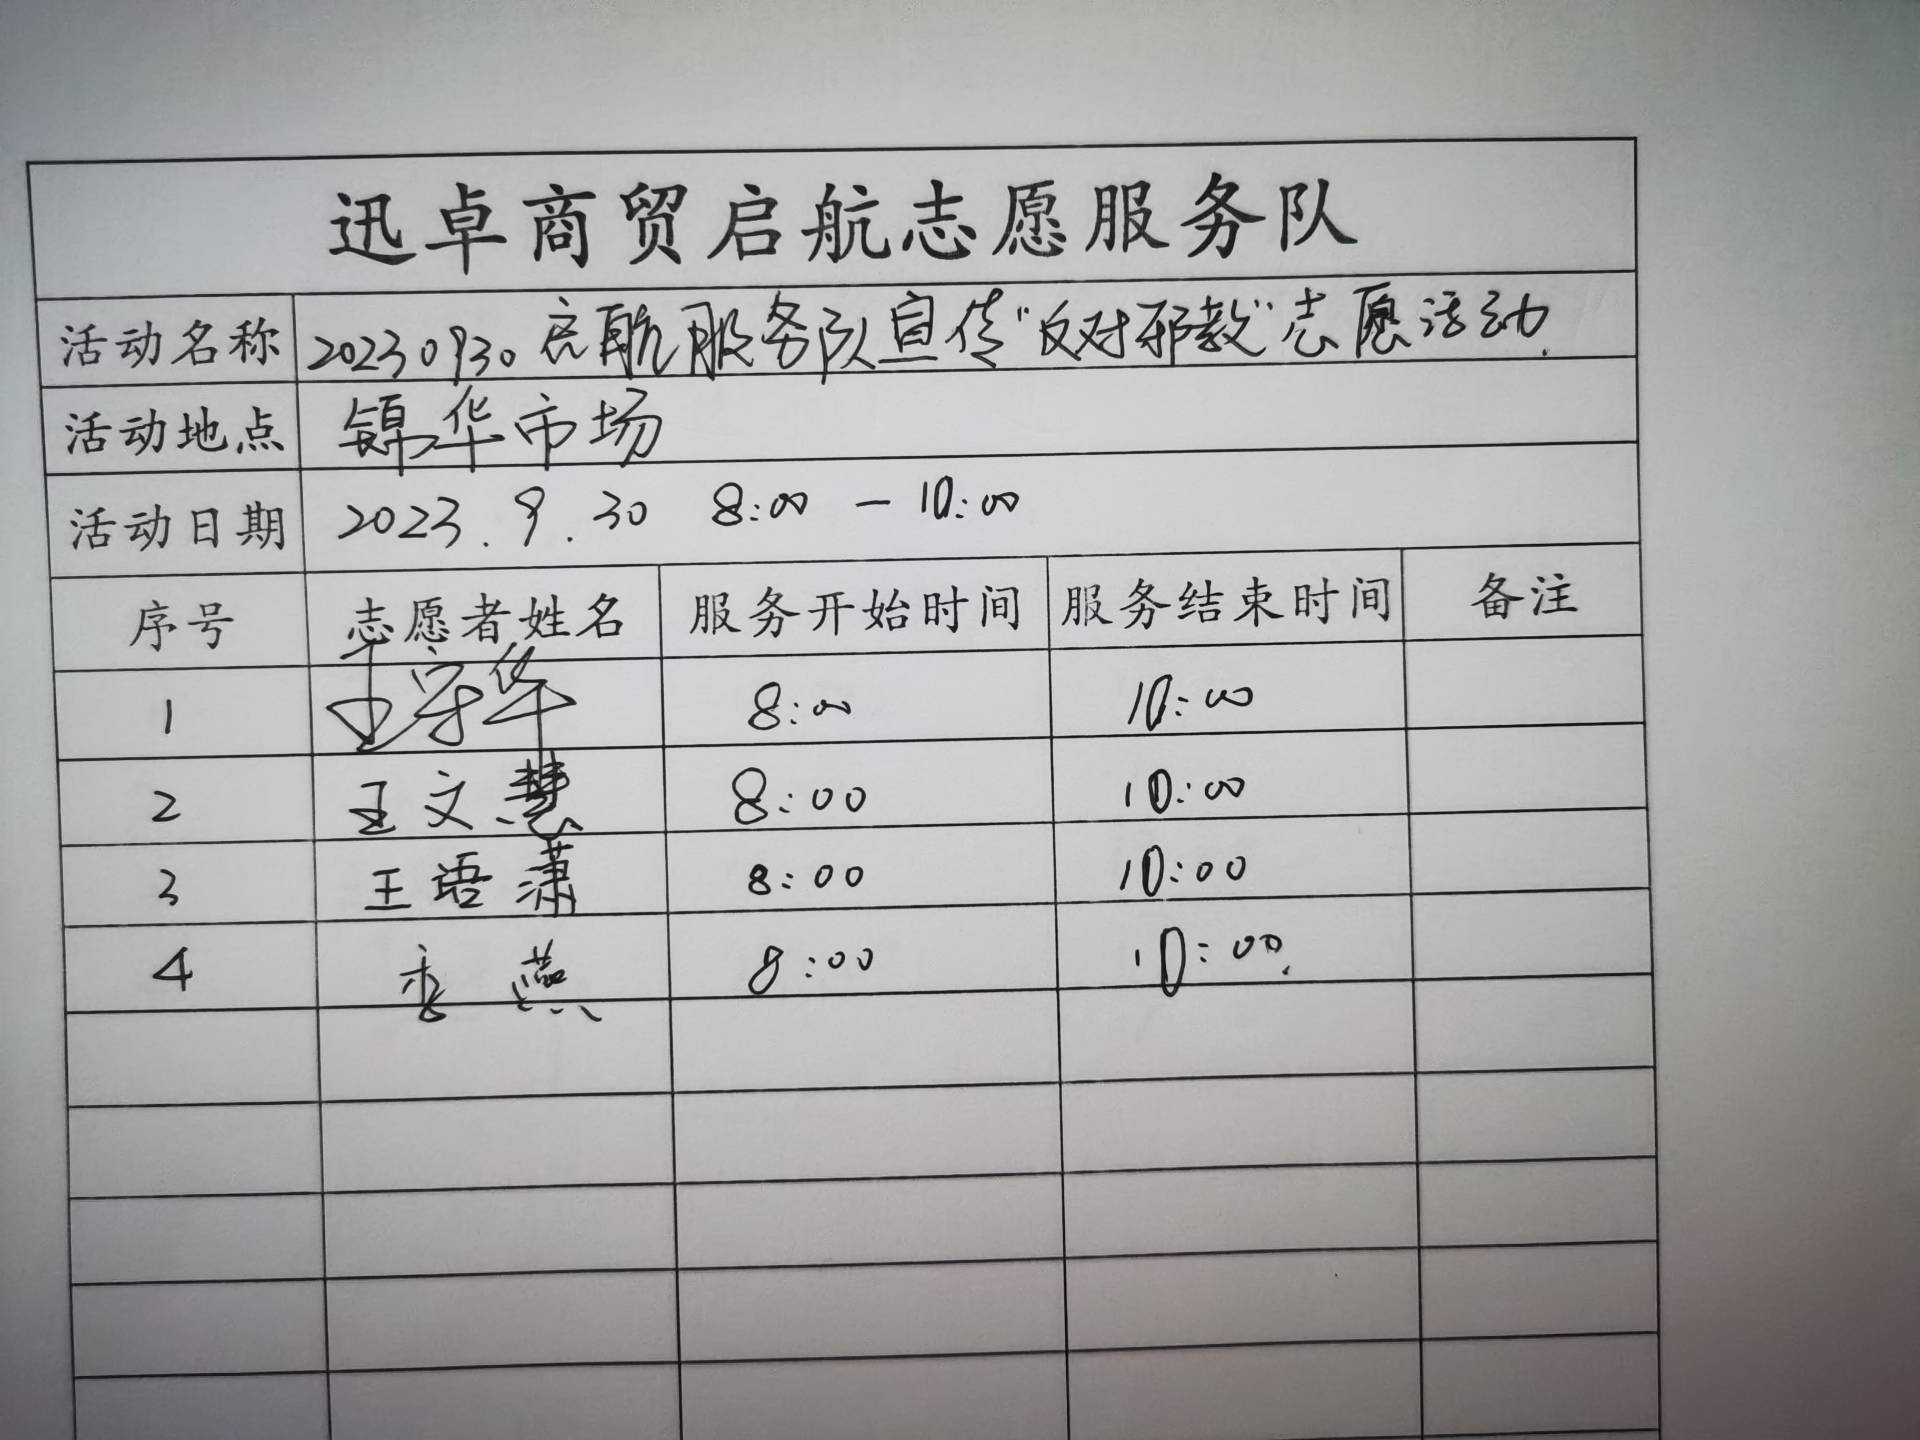 迅卓商贸启航志愿服务队
活动名称 20230930启航服务队宣传“反对邪教”志愿活动.
活动地点 锦华市场
活动日期 2023.9.30 8:00 — 10:00
序号 志愿者姓名 服务开始时间 服务结束时间 备注
1 王守华 8:00 10:00
2 王文慧 8:00 10:00
3 王语潇 8:00 10:00
4 李燕 8:00 10:00.